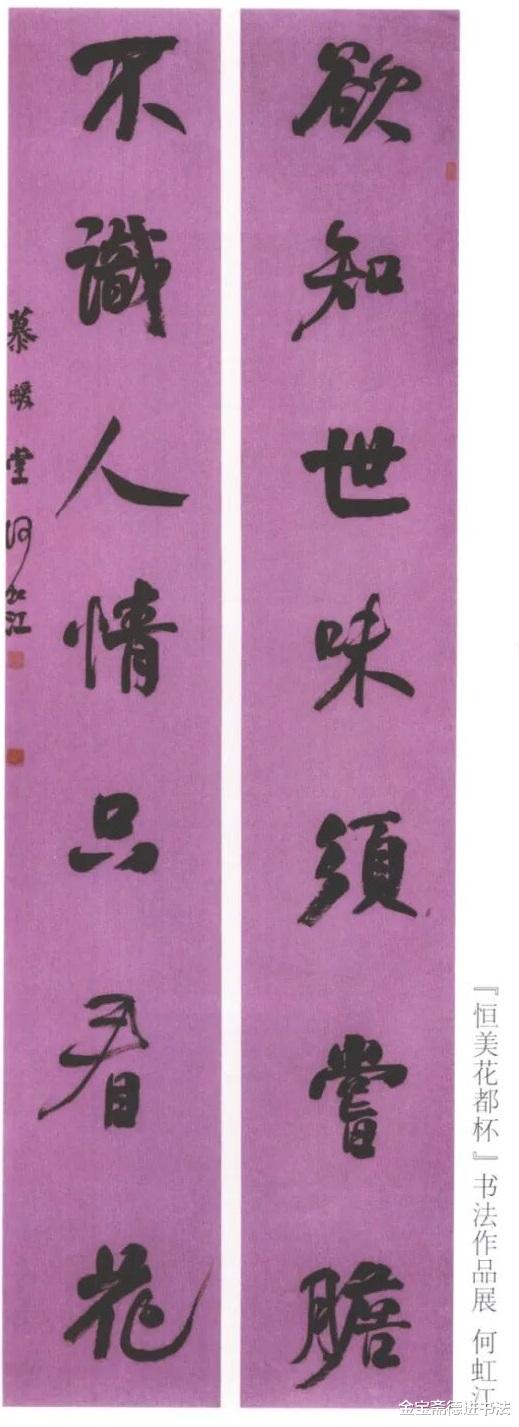 欲知世味須嘗膽
不識人情只看花
慕暖堂何虹江
『恒美花都杯』书法作品展 何虹江
金宝斋德进书法